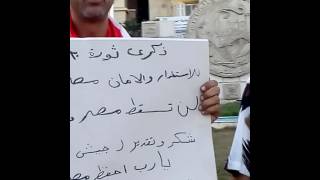 ذكرى ثورة ٣٠
للاستقرار والامان مصر
لن تسقط مصر
شكر وتقدير لجيش
يارب احفظ مصر